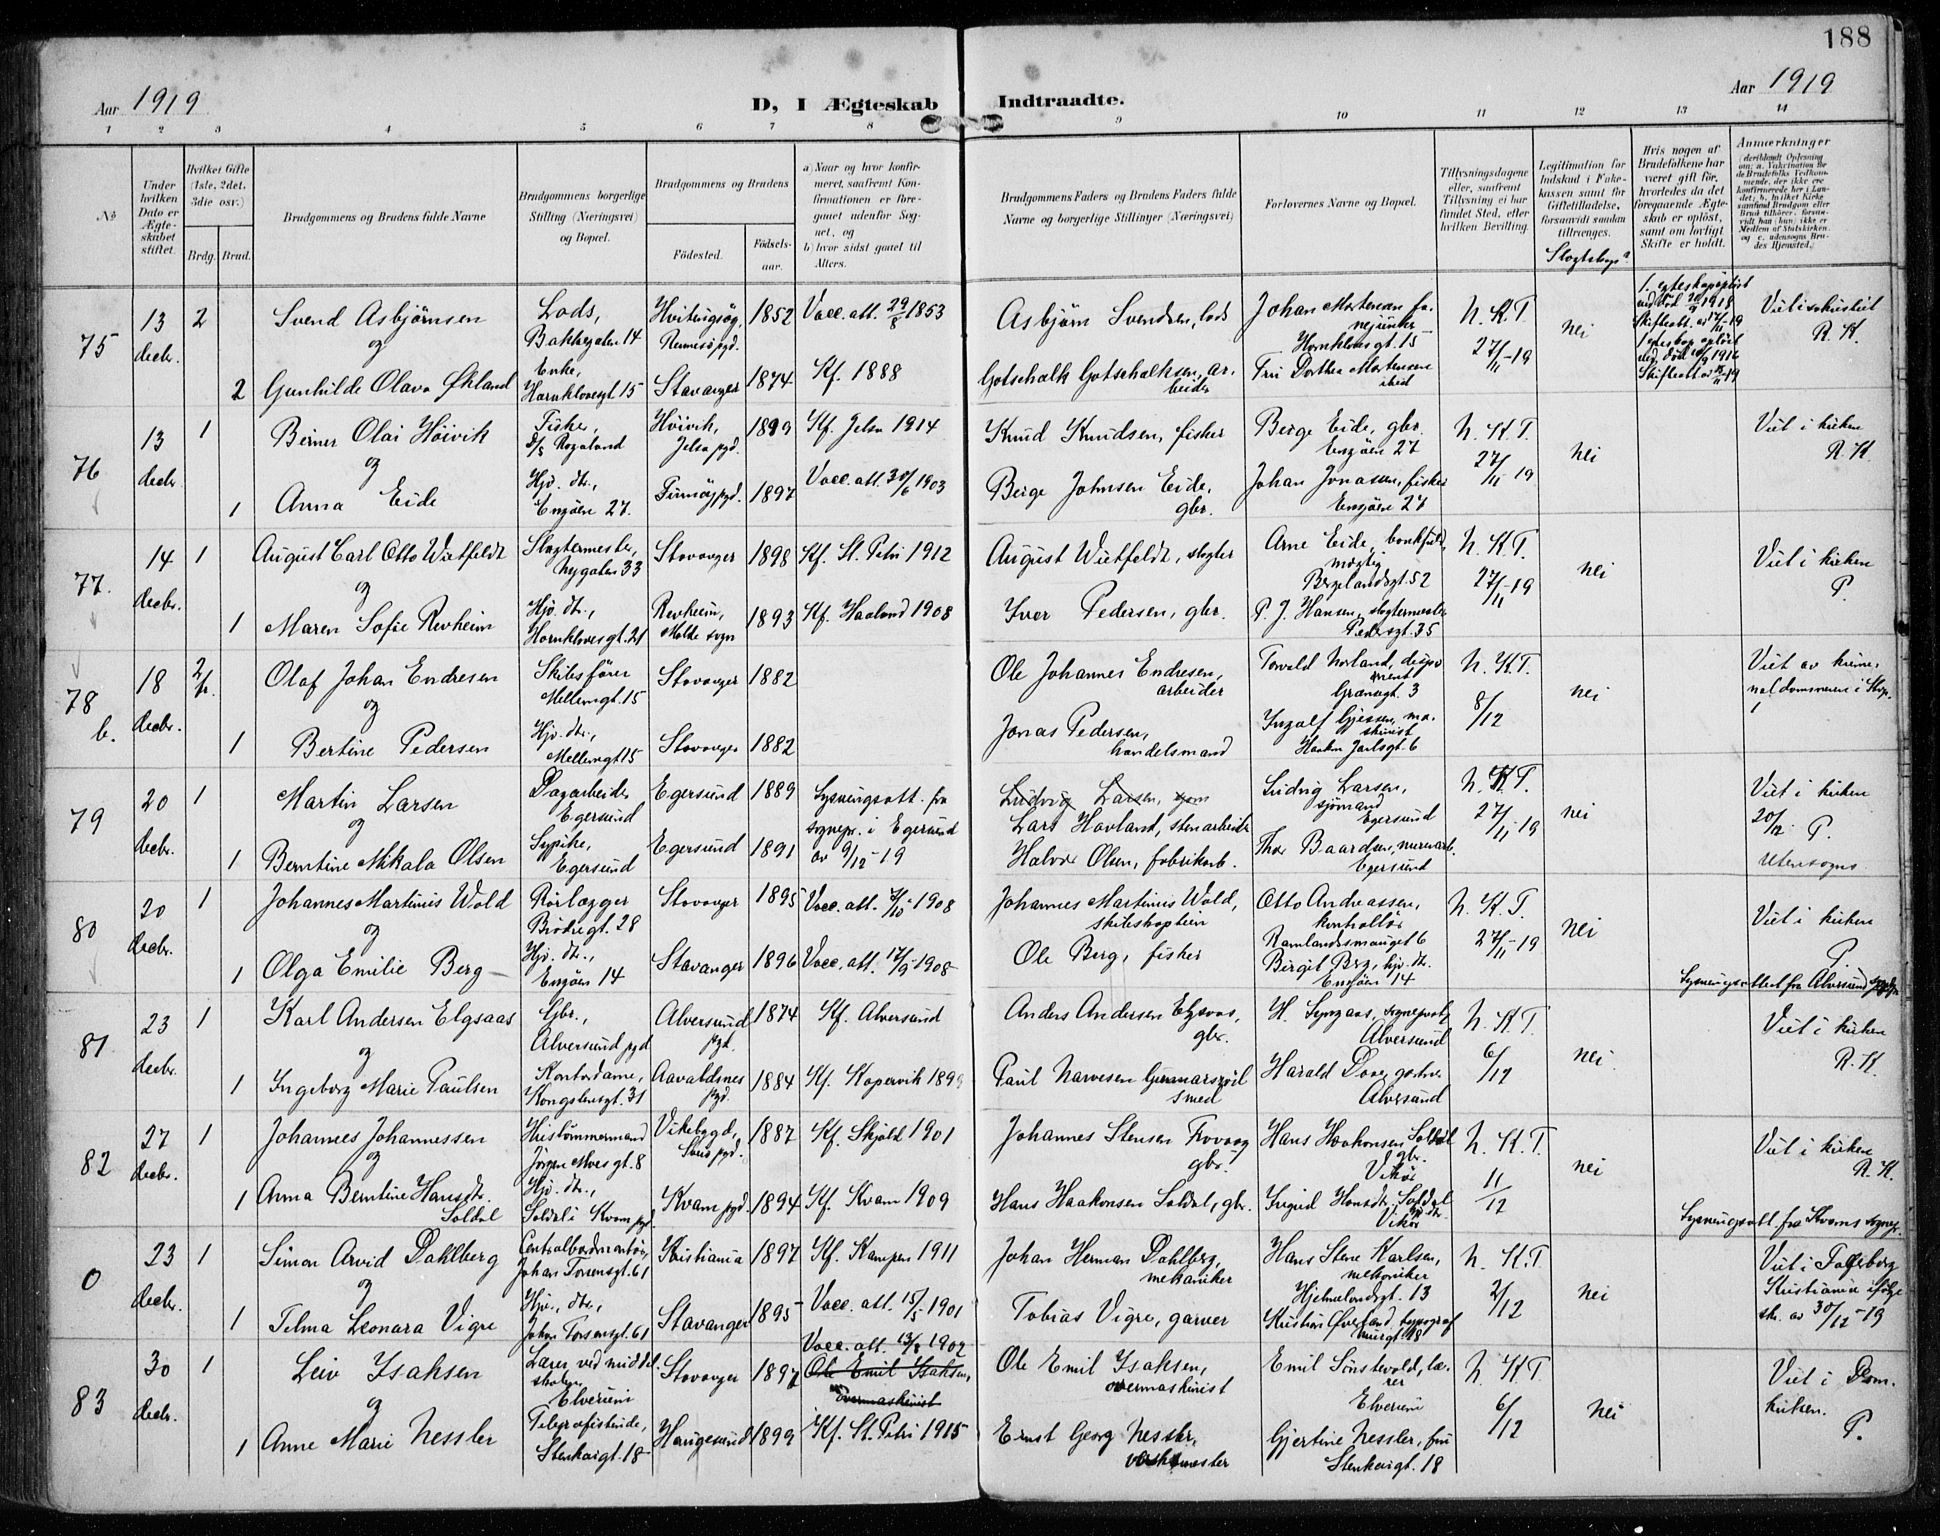 188
Aar 1919
D, I Ægteskab Indtraadte.
Aar 1919
1 2 3 4 5 6 7 8 9 10 11 12 13 14
No
Under hvilken Dato er Ægteskabet stiftet.
Hvilket Gifte (1ste, 2det, 3die osv.)
Brdg. Brud.
Brudgommens og Brudens fulde Navne
Brudgommens borgerlige Stilling (Næringsvei) og Bopæl.
Brudgommens og Brudens
Fødested.
Fødselsaar.
a) Naar og hvor konfirmeret, saafremt Konfirmationen er foregaaet udenfor Sognet, og
b) hvor sidst gaaet til Alters.
Brudgommens Faders og Brudens Faders fulde Navne og borgerlige Stillinger (Næringsvei)
Forlovernes Navne og Bopæl.
Tillysningsdagene eller, saafremt Tillysning ei har fundet Sted, efter hvilken Bevilling.
Legitimation for Indskud i Enkekassen samt for Giftetilladelse, forsaavidt saadan tiltrænges.
Hvis nogen af Brudefolkene har været gift før, hvorledes da det foregaaende Ægteskab er opløst, samt om lovligt Skifte er holdt.
Anmærkninger
75
13 decbr.
2
Svend Asbjørnsen
og
2 Gunhilde Olava Økland
Lods,
Bakkegaten 14
Enke,
Hornklovesgt. 15
Hvitingsøy,
Rennesø pgd.
Stavanger
1852
1874
Vacc. att. 29/8 1853
Kf. 1888
Asbjørn Svendsen, lods
Gotschalk Gotschalksen, arbeider
Johan Mortensen
Hornklovesgt. 15
Fru Dorthea Mortensen
ibid
N. K. T.
27/11-19
nei
R. K.
76
13 decbr.
1
Berner Olai Høivik
og
1 Anna Eide
Fisker,
d/s Rogaland
Hjv. dtr.,
Engøen 27.
Høivik,
Jelsa pgd.
Finnøy pgd.
1899
1897
Kf. Jelsa 1914
Vacc. att. 30/6 1903
Knud Knudsen, fisker
Berge Johnsen Eide,
gbr.
Berge Eide, gbr.
Engøen 27
Johan Jonassen, fisker
Engøen 27
N. K. T.
27/11-19
nei
Viet i kirken
R. K
77.
14 decbr.
1
August Carl Otto Wietfeldt
og
1 Maren Sofie Revheim
Slagtermester,
Nygaten 33
Hjv. dtr.,
Hornklovesgt. 21
Stavanger
Revheim,
Molde sogn
1898
1893
Kf. St. Petri 1912
Kf. Haaland 1908
August Wietfeldt, slagter
Ivar Pedersen, gbr.
Arne Eide, bankfuldmægtig
Bergelandsgt. 52
P. J. Hansen, slagtermester
Pedersgt. 35
N. K. T.
27/11-19
nei
Viet i kirken
P.
78
b.
18 decbr.
2
Olaf Johan Endresen
og
1 Bertine Pedersen
Skibsfører
Mellemgt. 15
Hjv. dtr.,
Mellemgt 15
Stavanger
Stavanger
1882
1882
Ole Johannes Endresen,
arbeider
Jonas Pedersen,
handelsmand
Torvald Norland, disponent
Grønsgt. 3
Ingolf Gjessen, maskinist
Haakon Jarlsgt. 6
N. K. T.
8/12
nei
79
20 decbr.
1
Martin Larsen
og
1 Berntine Mikala Olsen
Dagarbeider
Egersund
Sypike,
Egersund
Egersund
Egersund
1889
1891
Lysningsatt. fra
sognepr. i Egersund
av 9/12-19
Ludvig Larsen, sjøm
Lars Hovland, stenarbeider
Halvor Olsen, fabrikarb.
Ludvig Larsen,
sjømand
Egersund
Thor Baardsen, murerarb.
Egersund
N. K. T.
27/11-19
nei
Viet i kirken
20/12. P.
Utensogns
80
20 decbr.
1
Johannes Martinius Wold
og
1 Olga Emilie Berg
Rørlægger
Brødregt. 28
Hjv. dtr.,
Engøen 14
Stavanger
Stavanger
1895
1896
Vacc. att. 1908
Vacc. att. 17/9-1908
Johannes Martinus Wold,
skibskaptein
Ole Berg, fisker
Otto Andreassen,
kontrollør
Ramlandsmauget 6
Birgit Berg, hjv. dtr.
Engøen 14
N. K. T.
27/11-19
nei
Viet i kirken
P.
Lysningsattest fra Alversund
81
23 decbr.
1
Karl Andersen Elgsaas
og
1 Ingeborg Marie Paulsen
Gbr.,
Alversund pgd
Kontordame,
Kongsteinsgt. 31
Alversund
pgd.
Aavaldsnes
pgd.
1874
1884
Kf. Alversund
Kf. Kopervik 1899
Anders Andersen Elgsaas,
gbr.
Paul Narvesen Gunnarskjøl
smed
H. Lyngaas, sogneprest
Alversund
Harald Dove, gartner
Alversund
N. K T.
6/12
nei
Viet i kirken
R. K.
82
27 decbr.
1
Johannes Johannessen
og
1 Anna Berntine Hansdtr.
Soldal
Hustømmermand
Jørgen Moes gt. 8
Hjv. dtr.,
Soldal i Kvam pgd
Vikebygd,
Kvam pgd.
1887
1894
Kf. Skjold 1901
Kf. Kvam 1909
Johannes Stensen
gbr.
Hans Haakonsen Soldal, gbr.
Hans Haakonsen Soldal
gbr.
Vikør
Ingrid Hansdtr. Soldal
Vikør
N. K. T.
11/12
nei
Viet i kirken
R. K.
Lysningsatt. fra Kvams sognepr.
0
23 decbr.
1
Simon Arvid Dahlberg
og
1 Telma Leonara Vigre
Centralbordmontør
Johan Torsensgt. 61
Hjv., dtr.,
Johan Torsensgt. 61
Kristiania
Stavanger
1897
1895
Kf. Kampen 1911
Vacc. att. 15/5-1901
Johan Herman Dahlberg,
mekaniker
Tobias Vigre, garver
Hans Stene Karlsen,
mekaniker
Hjelmelandsgt. 13
Kristian Øverland, typograf
N. K. T.
2/12
nei
Viet i Fagerborg
Kristiania ifølge
skr. av 30/12-19
83
30 decbr.
1
Leiv Isaksen
og
1 Anne Marie Nessler
Lærer ved middelskolen,
Elverum
Telegrafistinde,
Stenkargt. 18
Stavanger
Haugesund
1897
1899
Vacc. att. 13/8 1902
Ole Emil Isaksen,
overmaskinist
Kf. St. Petri 1915
Ole Emil Isaksen,
overmaskinist
Ernst Georg Nessler,
verksmester
Emil Sønstevold, lærer
Elverum
Gjertine Nessler, fru
Stenkargt. 18
N. K T.
6/12
nei
Viet i Domkirken.
P.